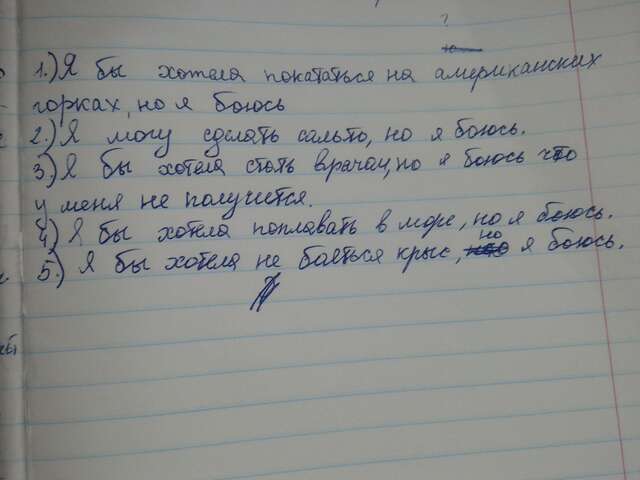 1.) Я бы хотела покататься на американских
горках, но я боюсь
2.) Я могу сделать сальто, но я боюсь.
3.) Я бы хотела стать врачом, но я боюсь что
у меня не получется.
4.) Я бы хотела поплавать в море, но я боюсь.
5.) Я бы хотела не бояться крыс, но я боюсь.